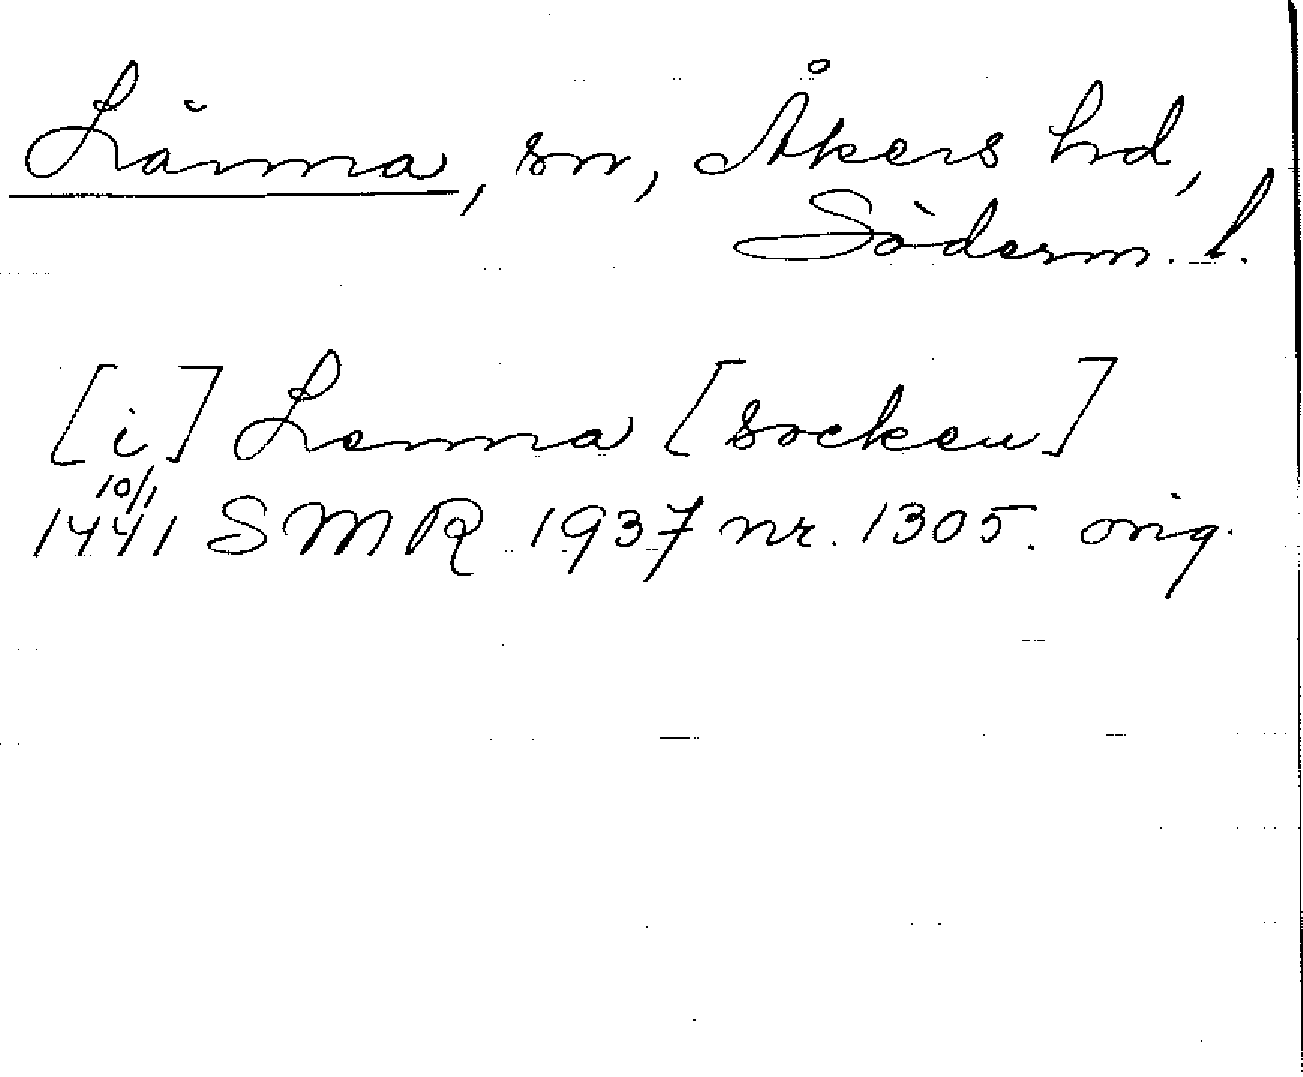 Länna, sn, Åkers hd,
Söderm. l.
[i] Lenna [socken]
10/1
1441 SMR 1937 nr. 1305. orig.